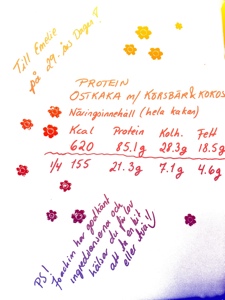 Till Emelie
på 29-års Dagen!
PROTEIN
OSTKAKA m/ KÖRSBÄR & KOKOS
Näringsinnehåll (hela kakan)
Kcal Protein Kolh. Fett
620 85.1g 28.3g 18.5g
1/4 155 21.3g 7.1g 4.6g
PS!
Joachim har godkänt
ingredienserna och
hälsar du får lov
att ta en bit
eller två!